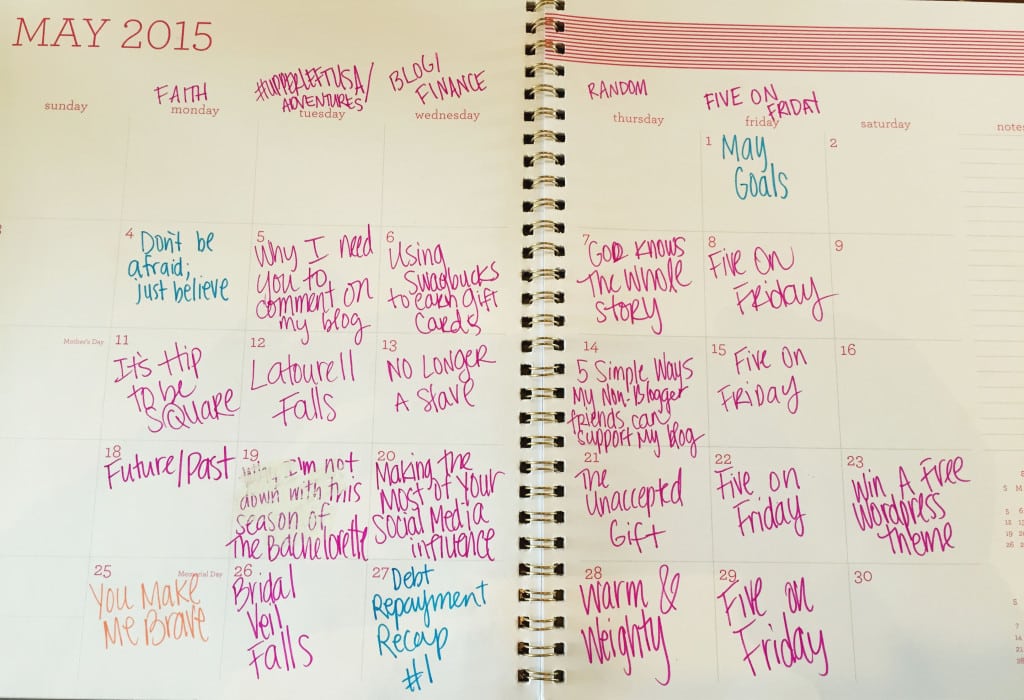 MAY 2015
FAITH
#UPPERLEFTUSA/
ADVENTURES
BLOG/
FINANCE
RANDOM
FIVE ON
FRIDAY
sunday
monday
tuesday
wednesday
thursday
friday
saturday
notes
1
May
Goals
2
4
Don't be
afraid;
just believe
5
Why I need
you to
comment on
my blog
6
Using
Swagbucks
to earn gift
cards
7
God knows
The whole
story
8
Five on
Friday
9
Mother's Day
11
It's Hip
to be
SQuare
12
Latourell
Falls
13
No Longer
A Slave
14
5 Simple Ways
My Non-Blogger
friends can
support my blog
15
Five on
Friday
16
18
Future/Past
19
Why I'm not
down with this
season of
The Bachelorette
20
Making the
Most of Your
Social Media
influence
21
The
Unaccepted
Gift
22
Five on
Friday
23
Win A Free
Wordpress
theme
25
Memorial Day
You Make
Me Brave
26
Bridal
Veil
Falls
27
Debt
Repayment
Recap
#1
28
Warm &
Weighty
29
Five on
Friday
30